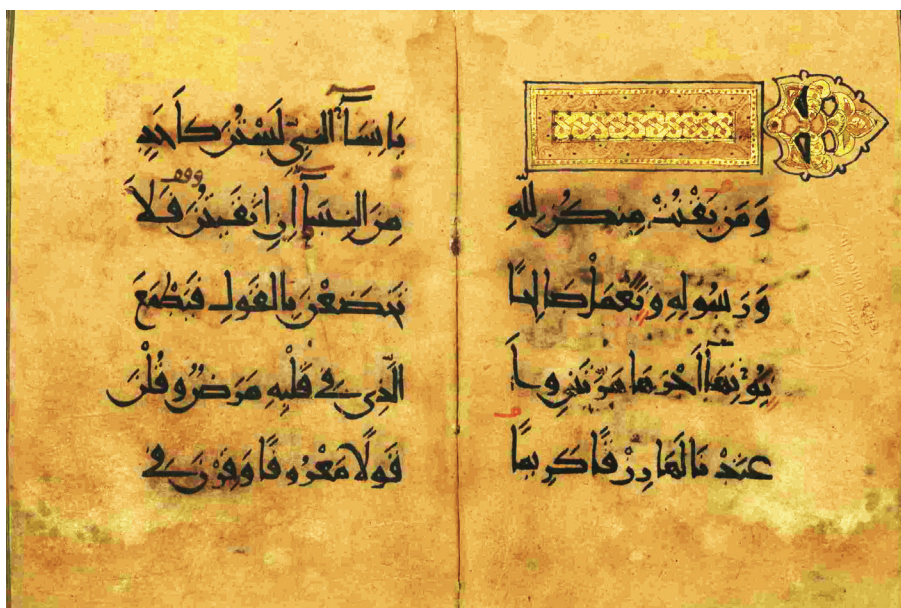 وَمَن يَقْنُتْ مِنكُنَّ لِلَّهِ
وَرَسُولِهِ وَتَعْمَلْ صَالِحًا
نُّؤْتِهَآ أَجْرَهَا مَرَّتَيْنِ وَأَ
عْتَدْنَا لَهَا رِزْقًا كَرِيمًا
يَا نِسَآءَ النَّبِيِّ لَسْتُنَّ كَأَحَدٍ
مِّنَ النِّسَآءِ إِنِ اتَّقَيْتُنَّ فَلَا
تَخْضَعْنَ بِالْقَوْلِ فَيَطْمَعَ
الَّذِي فِي قَلْبِهِ مَرَضٌ وَقُلْنَ
قَوْلًا مَّعْرُوفًا وَقَرْنَ فِي